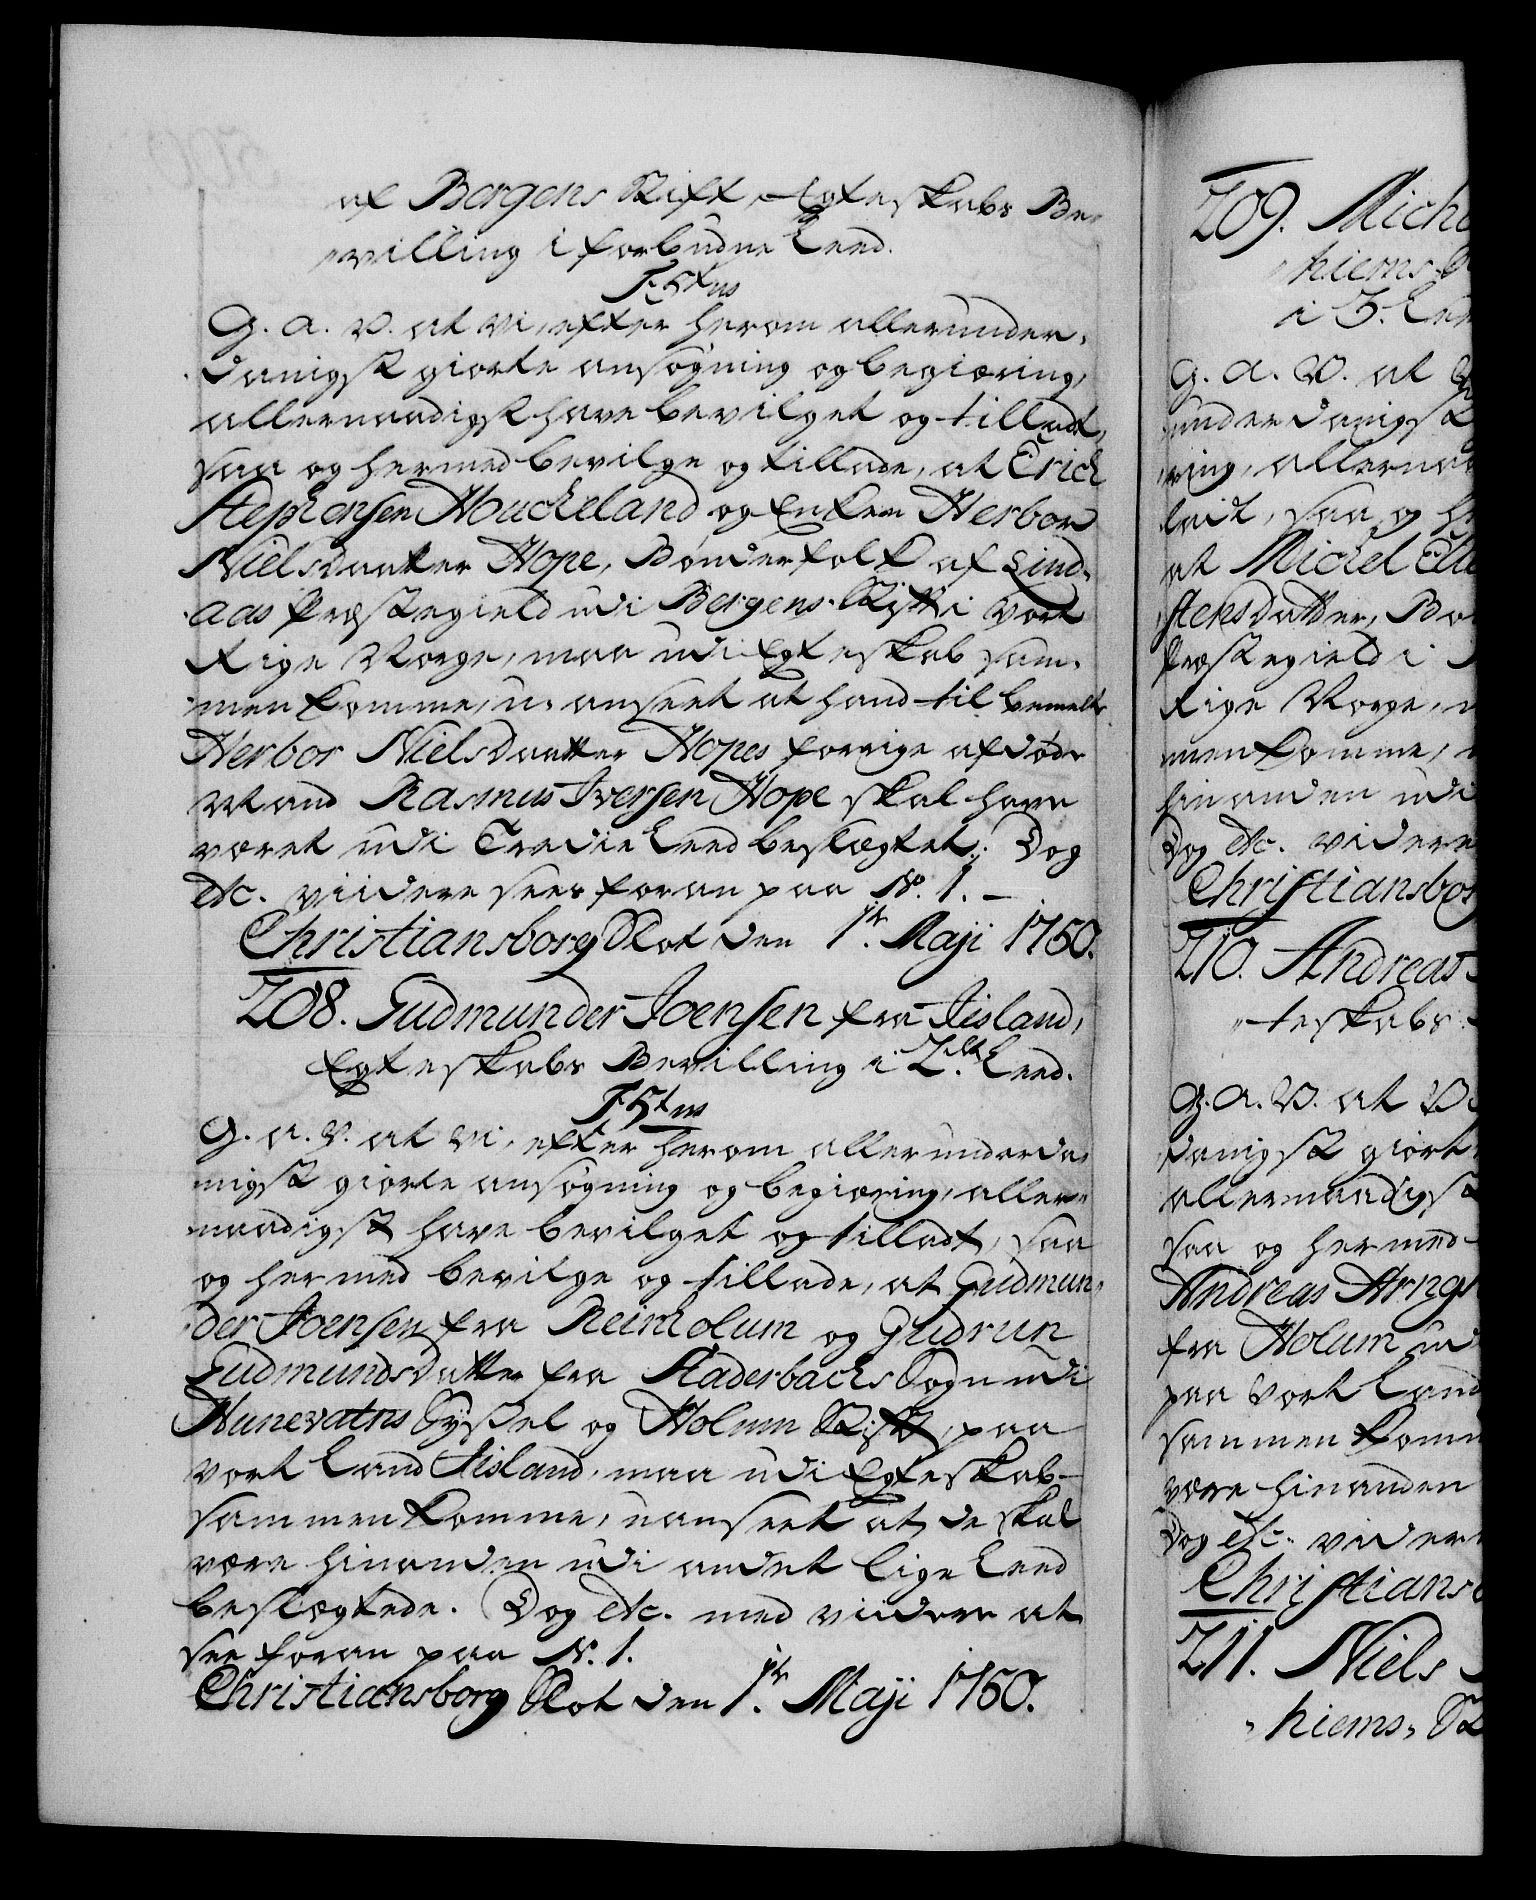 af Bergens Stift, Egteskabs Be-
villing i forbudne Leed.
F 5tus
G. A. V. at Vi, efter herom allerunder-
danigst giorte ansøgning og begiæring,
allernaadigst have bevilget og tilladt,
saa og hermed bevilge og tillade, at Erich
Stephensen Houckeland og Enken Herbor
Nielsdaatter Hope, Bønderfolk af Lind-
aas Præstegield udi Bergens Stift i Vort
Rige Norge, maa udi Egteskab sam-
men komme, u-anseet at hand til bemelte
Herbor Nielsdaatter Hopes forrige afdøde
Mand Rasmus Iversen Hope skal have
været udi Tredie Leed beslægtet. Dog
etc. viidere sees foran paa No. 1. -
Christiansborg Slot den 1te Maji 1760.
208. Gudmunder Joensen fra Iisland,
Egteskabs Bevilling i 2det Leed.
F 5tus
G. A. V. at Vi, efter herom allerunderda-
nigst giorte ansøgning og begiæring, aller-
naadigst have bevilget og tilladt, saa
og hermed bevilge og tillade, at Gudmun-
der Joensen fra Reinholum og Gudrun
Gudmundsdatter fra Staderbachs Sogn udi
Hunevatns Syssel og Holum Stift, paa
vort Land Iisland, maa udi Egteskab
sammen komme, uanseet at de skal
være hinanden udi andet lige Leed
beslægtede. Dog etc. med viidere at
see foran paa No. 1.
Christiansborg Slot den 1te Maji 1760.
209. Mich
hiems
i 3. Lee
G. A. V. at
underdanigst
ring, allernaa
ladt, saa og he
at Michel
stensdatter, Bø
Præstegield i
Rige Norge, m
men komme,
hinanden udi
Dog etc. videre
Christiansbor
210. Andreas
teskabs
G. A. V. at V
danigst giort
allernaadigst
saa og hermed
Andreas Arngr
fra Holum ud
paa Vort Land
sammen komm
være hinanden
Dog etc. vider
Christiansb
211. Niels
hiems, St